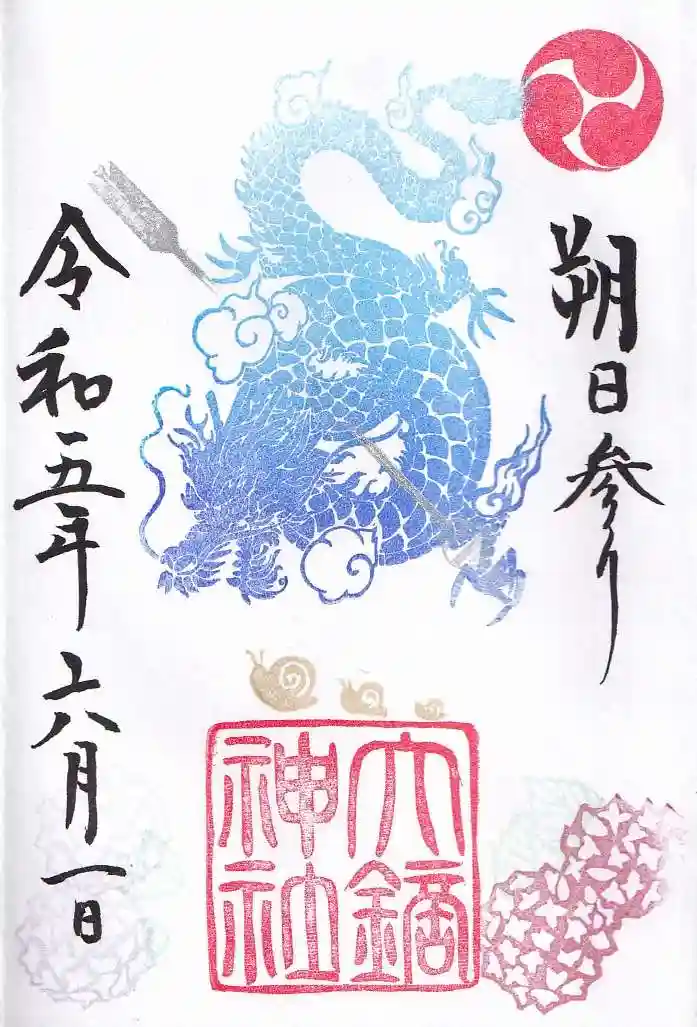 朔日参り
大鏑
神社
令和五年六月一日